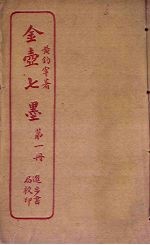 黄鈞宰著
金壺七墨
第一冊
進步書
局校印